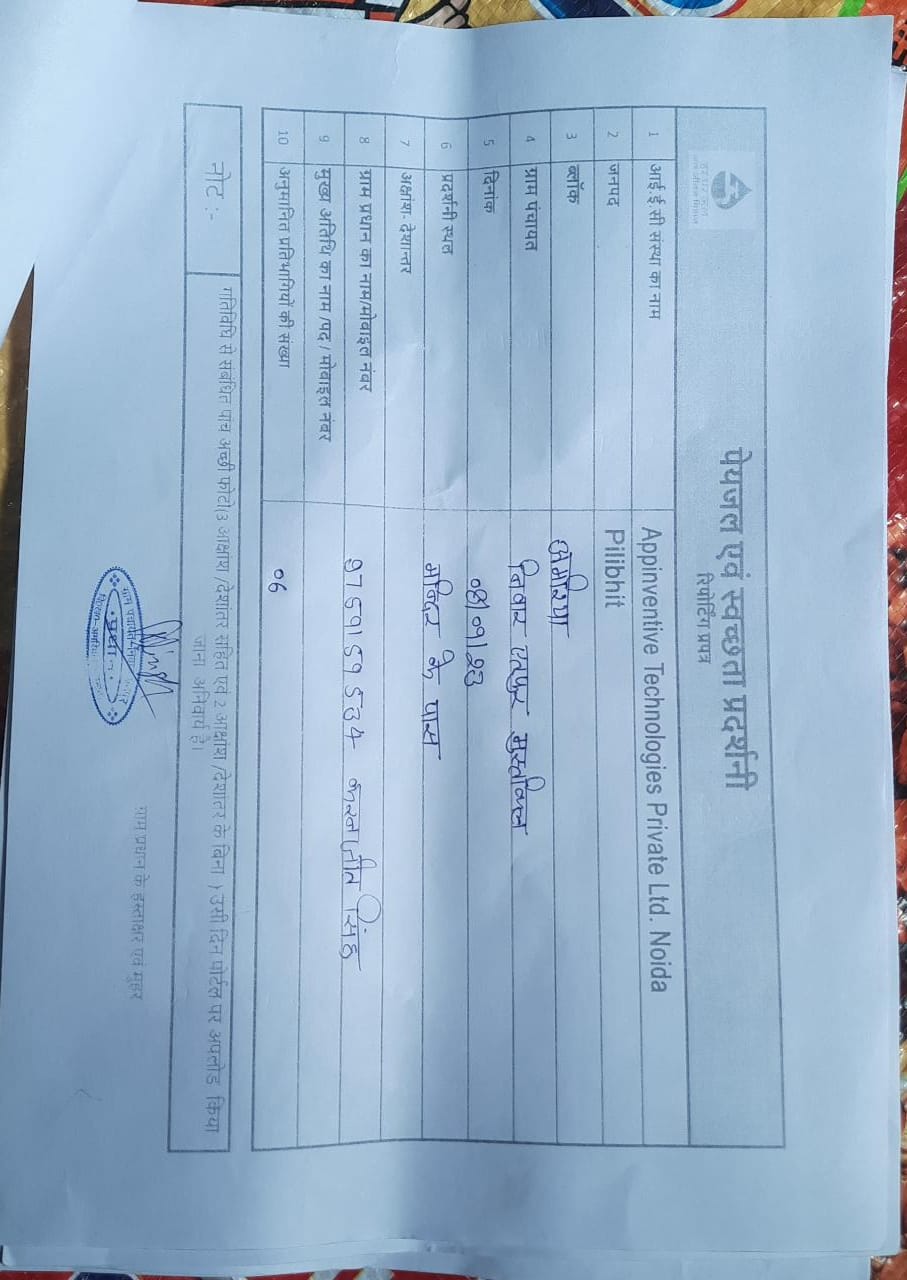 पेयजल एवं स्वच्छता प्रदर्शनी
रिपोर्टिंग प्रपत्र
1 आई ई सी संस्था का नाम Appinventive Technologies Private Ltd. Noida
2 जनपद Pilibhit
3 ब्लॉक अमरिया
4 ग्राम पंचायत
5 दिनांक
6 प्रदर्शनी स्थल मन्दिर के पास
7 अक्षांश- देशान्तर
8 ग्राम प्रधान का नाम/मोबाइल नंबर सिंह
9 मुख्य अतिथि का नाम /पद / मोबाइल नंबर
10 अनुमानित प्रतिभागियों की संख्या ०6
नोट :- गतिविधि से संबंधित पांच अच्छी फोटो(3 अक्षांश /देशांतर सहित एवं 2 अक्षांश /देशांतर के बिना ) उसी दिन पोर्टल पर अपलोड किया
जाना अनिवार्य है।
ग्राम प्रधान के हस्ताक्षर एवं मुहर